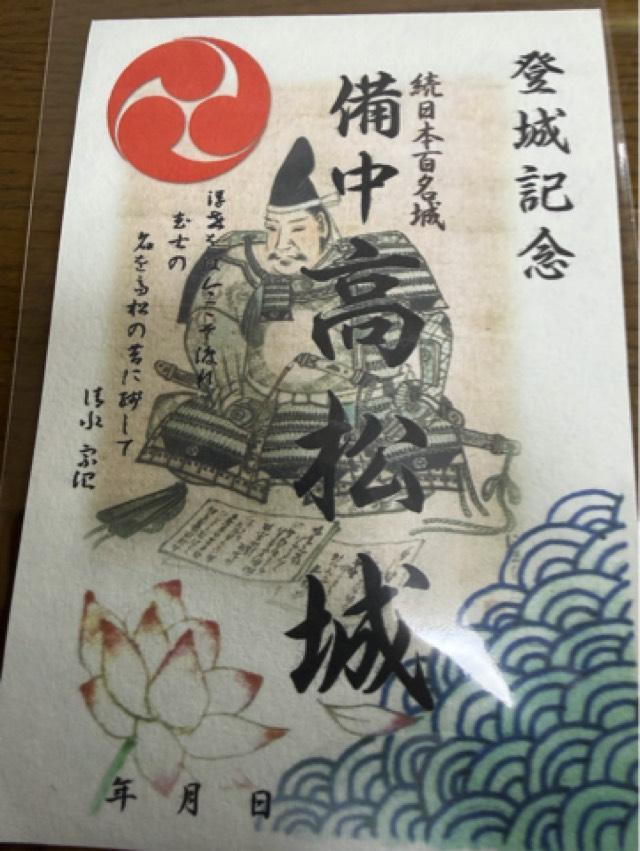 登城記念
続日本百名城
備中高松城
浮世をば今こそ渡れ
武士の
名を高松の苔に残して
清水 宗治
年 月 日